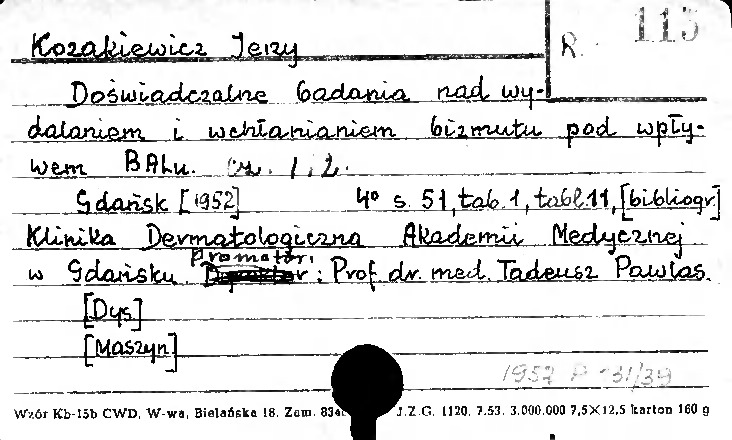 Kozakiewicz Jerzy
R. 115
Doświadczalne badania nad wy-
dalaniem i wchłanianiem bizmutu pod wpły-
wem BALu. cz. 1, 2.
Gdańsk [1952] 4° s. 51, tab. 1, tabl. 11, [bibliogr]
Klinika Dermatologiczna Akademii Medycznej
Promotor:
w Gdańsku : Prof. dr. med. Tadeusz Pawlas.
[Dys]
[Maszyn]
1957 P -31/39
Wzór Kb-15b CWD, W-wa, Bielańska 18. Zam. J.Z.G. 1120. 7.53. 3.000.000 7,5×12,5 karton 160 g